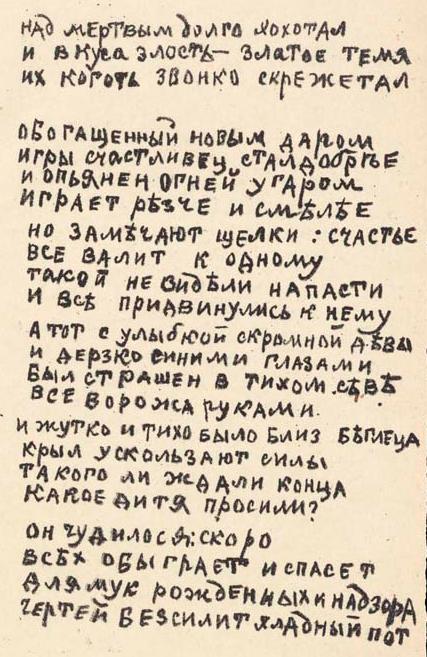 над мертвым долго хохотал
и вкуса злость — златое темя
их коготь звонко скрежетал
обогащенный новым даром
игры счастливец стал добрѣе
и опьянен огней угаром
играет рѣзче и смѣлѣе
но замѣчают щелки: счастье
все валит к одному
такой не видѣли напасти
и всѣ придвинулись к нему
а тот с улыбкой скромной дѣвы
и дерзко синими глазами
был страшен в тихом сѣвѣ
все ворожа руками.
и жутко и тихо было близ бѣглеца
крыл ускользают силы
такого ли ждали конца
какое дитя просили?
он чудилося: скоро
всѣх обыграет и спасет
для мук рожденных и надзора
чертей безсилит хладный пот